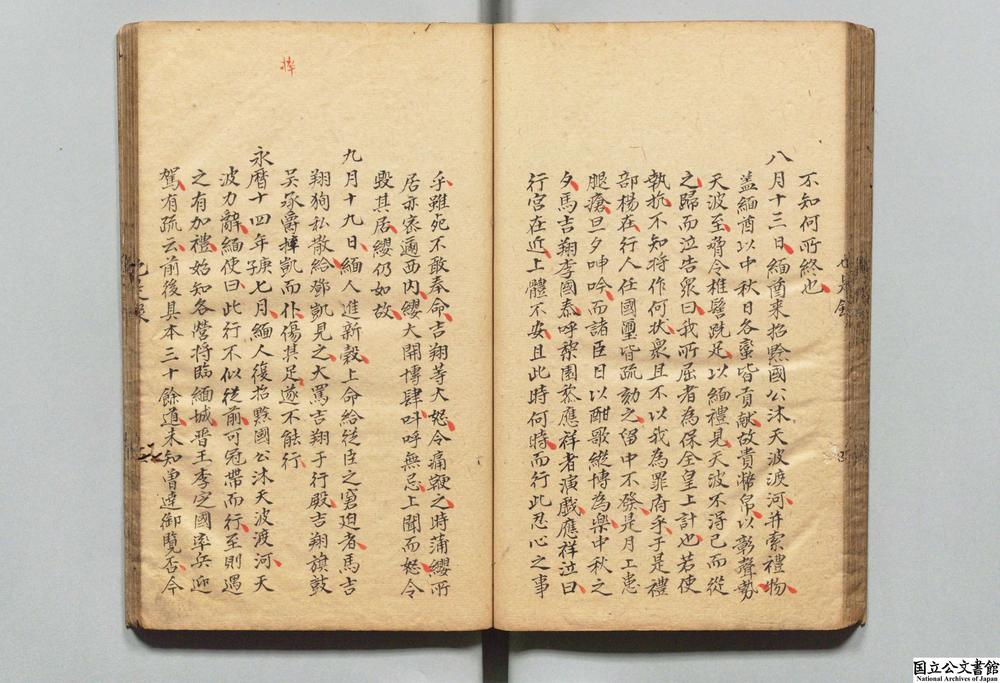 不知何所終也
八月十三日緬酋来招黔國公沐天波渡河并索禮物
盖緬酋以中秋日各蛮皆貢献故責幣帛以彰聲勢
天波至脅令椎髻跣足以緬禮見天波不得已而從
之歸而泣告衆曰我所屈者為保全皇上計也若使
執抗不知将作何状衆且不以我為罪府乎于是禮
部楊在行人任國璽皆疏劾之留中不發是月上患
腿瘡旦夕呻吟而諸臣日以酣歌縱博為樂中秋之
夕馬吉翔李國泰呼黎園蔡應祥者演戲應祥泣曰
行宮在近上體不安且此時何時而行此忍心之事
乎雖死不敢奉命吉翔等大怒令痛鞭之時蒲纓所
居亦密邇西内纓大開博肆呌呼無忌上聞而怒令
毀其居纓仍如故
九月十九日緬人進新穀上命給從臣之窘迫者馬吉
翔狥私散給鄧凱見之大罵吉翔于行殿吉翔旗鼓
吴承爵摔凱而仆傷其足遂不能行
永曆十四年庚子七月緬人復招黔國公沐天波渡河天
波力辭緬使曰此行不似從前可冠帶而行至則遇
之有加禮始知各營将臨緬城晋王李定國率兵迎
駕有疏云前後具本三十餘道未知曾達御覽否今
摔
国立公文書館
National Archives of Japan